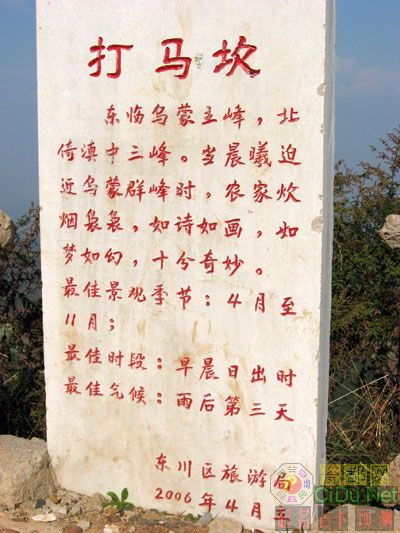 打马坎
东临乌蒙主峰，北
倚滇中三峰。当晨曦迫
近乌蒙群峰时，农家炊
烟袅袅，如诗如画，如
梦如幻，十兮奇妙。
最佳景观季节：4月至
11月；
最佳时段：早晨日出时
最佳气候：雨后第三天
东川区旅游局
2006年4月立
奇都网
CiDu.Net